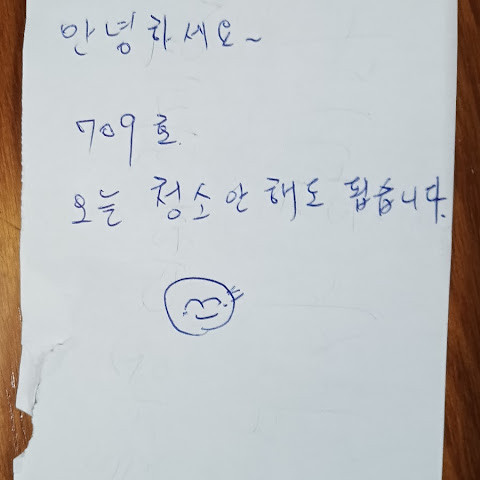 안녕하세요~
709호.
오늘 청소 안 해도 됩습니다.